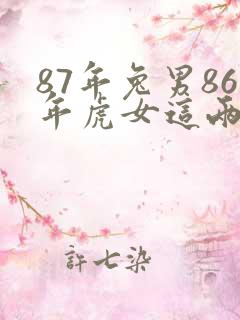 87年兔男86
年虎女這兩
許七染